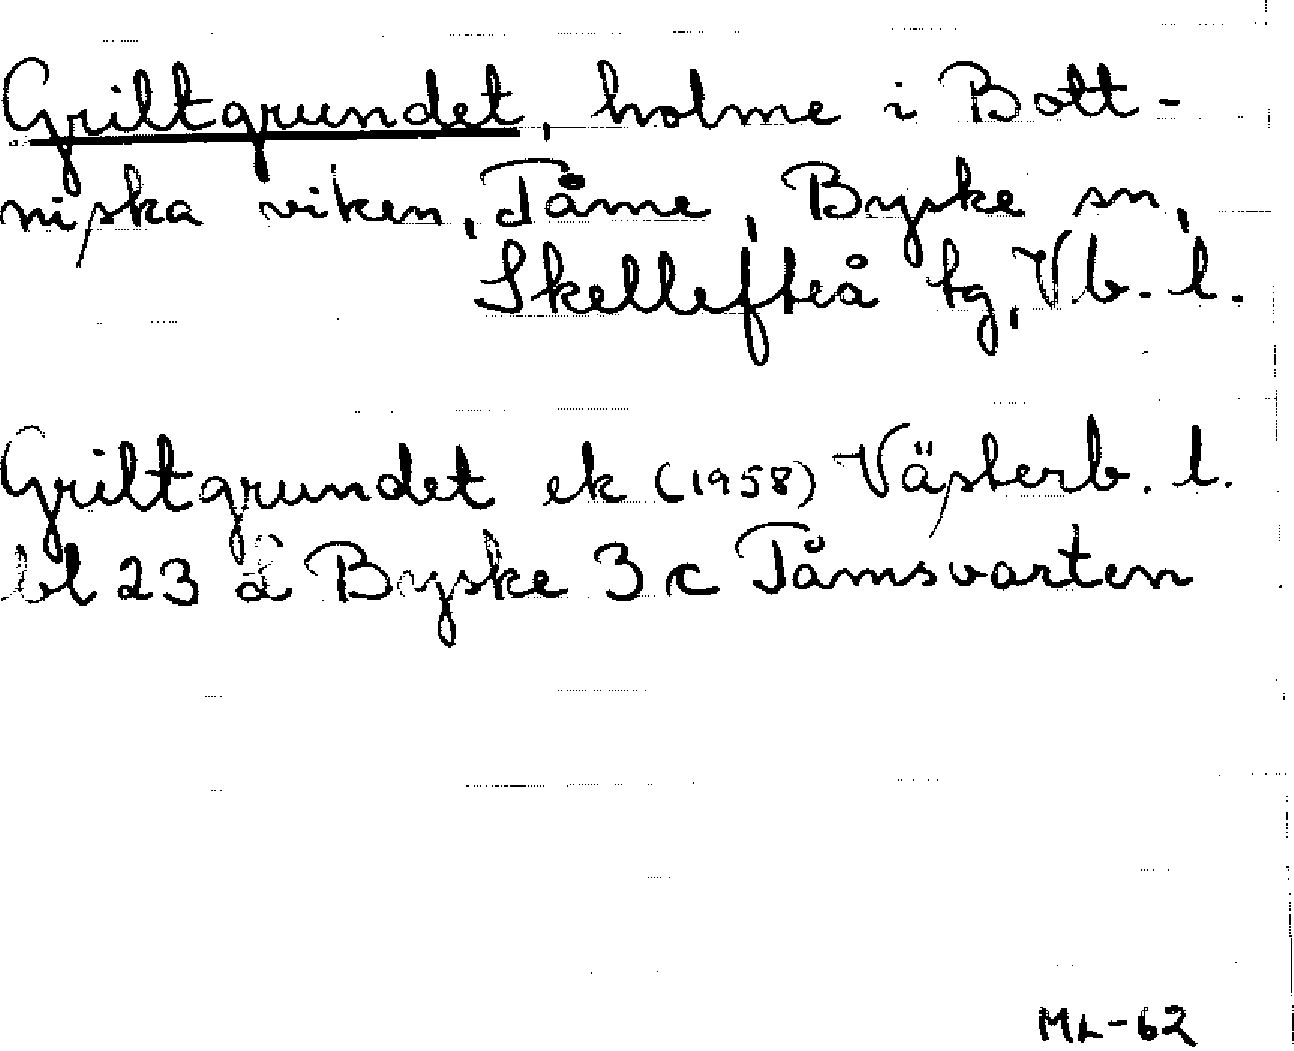 Griltgrundet, holme i Bott-
niska viken, Tåme, Byske sn,
Skellefteå tg, Vb. l.
Griltgrundet ek (1958) Västerb. l.
bl 23 Byske 3 c Tåmsvarten
ML-62